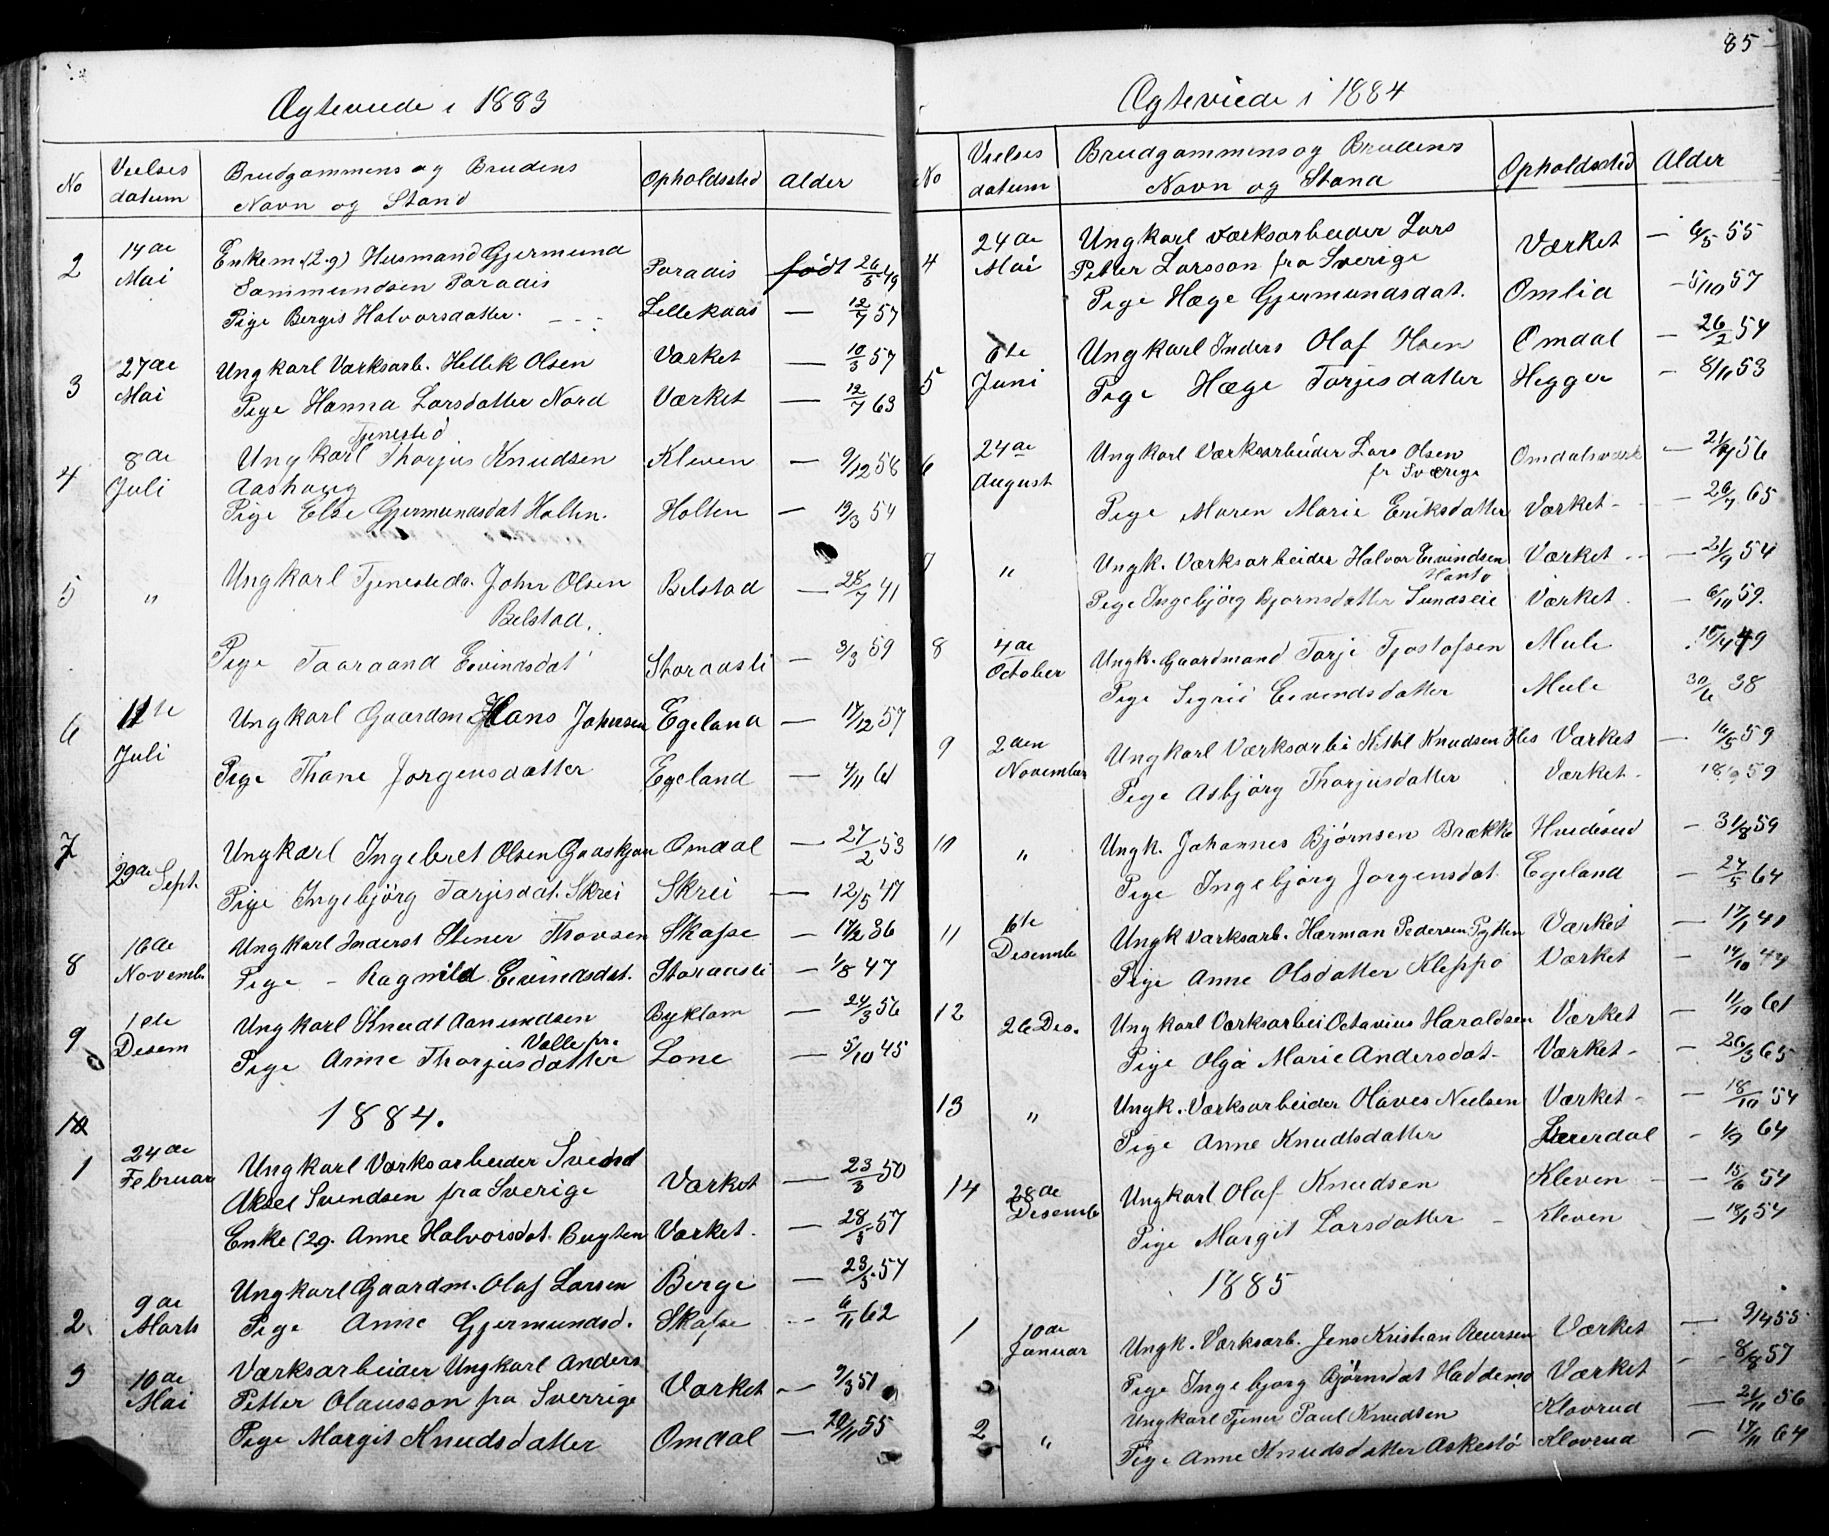 85
Ægteviede i 1883
No
Vielses datum
Brudgommens og Brudens Navn og Stand
Opholdssted
Alder
2
14de Mai
Enkem. (2.g) Husmand Gjermund
Sammundsen Paradis
Paradis
født 26/5 49
Pige Berget Halvorsdatter.
Lillekaas
— 12/7 57
3
27de Mai
Ungkarl Værksarb. Hellek Olsen
Værket
— 10/3 57
Pige Hanna Larsdatter Nord
Værket
— 12/7 63
4
8de Juli
Tjenested
Ungkarl Thorjus Knudsen
Aashaug
Kleven
— 9/12 58
Pige Else Gjermundsdat Holten.
Holten
— 19/3 54
5
"
Ungkarl Tjenesteda. John Olsen
Belstad.
Belstad
— 28/7 41
Pige Taaraand Eivindsdat
Storaasli
— 3/3 59
6
11te Juli
Ungkarl Gaardm Hans Johnsen
Egeland
— 17/12 57
Pige Thone Jørgensdatter
Egeland
— 4/11 61
7
29de Sept.
Ungkarl Ingebret Olsen Gaaskjøn
Omdal
— 27/2 53
Pige Ingebjørg Tarjesdat. Skrei
Skrei
— 12/5 47
8
16de Novemb
Ungkarl Inderst Stener Thovsen
Skafse
— 17/2 36
Pige – Ragnild Eivindsdat.
Storaasli
— 1/8 47
9
1ste Desem
Ungkarl Knudt Aanundsen
Valle fra
Byklom
— 24/3 56
Pige Anne Thorjusdatter
Lone
— 5/10 45
10
1884.
1
24de Februar
Ungkarl Værksarbeider Svend
Aksel Svendsen fra Sverige
Værket
— 23/3 50
Enke (2g. Anne Halvorsdat. Bugten
Værket.
— 28/5 57
2.
9de Marts
Ungkarl Gaardm. Olaf Larsen
Berge
— 23/5 57
Pige Anne Gjermundsd.
Skafse
-- 6/11 62
3
10de Mai
Værksarbeider Ungkarl Anders
Petter Olausson fra Sverrige
Værket
— 9/3 51
Pige Margit Knudsdatter
Omdal
— 20/11 55
Ægteviede i 1884
No
Vielses datum
Brudgommens og Brudens Navn og Stand
Opholdssted
Alder
4
24de Mai
Ungkarl værksarbeider Lars
Petter Larsson fra Sverige
Værket
— 6/5 55
Pige Hæge Gjermundsdat.
Omlid
— 5/10 57
5
6te Juni
Ungkarl Inders Olaf Hsen
Omdal
— 26/2 54
Pige Hæge Tarjesdatter
Hegger
— 8/11 53
6
24de August
Ungkarl Værksarbeider Lars Olsen
fr Sværige
Omdalsværk
— 56
Pige Maren Marie Eriksdatter
Værket -
— 26/7 65
7
"
Ungk. Værksarbeider Halvor Eivindsen
Hanto
Værket -
— 21/9 54
Pige Ingebjörg Bjørnsdatter Sundseie
Værket.
— 6/10 59.
8
4de October
Ungk. Gaardmand Tarje Tjostofsen
Mule
49
Pige Sigrid Eivindsdatter
Mule
30/6 38
9
2den November
Ungkarl Værksarbei Ketil Knudsen Hes
Værket
— 16/5 59
Pige Asbjørg Thorjusdatter
Værket -
18/9 59
10
"
Ungk. Johannes Bjørnsen Brække
Hvideseid
— 31/8 59
Pige Ingebjörg Jørgensdat
Egeland
— 27/5 64
11
6te Desemb
Ungk Værksarb. Herman Pedersen Pytten
Værket
— 17/1 41
Pige Anne Olsdatter Kleppo
Værket
— 14/10 44
12
26 Des.
Ungkarl Værksarbei Octavius Haraldsen
Værket
— 11/10 61
Pige Olga Marie Andersdat-
Værket -
— 26/3 65
13
"
Ungk. Værksarbeider Olaves Nielsen
Værket -
— 18/10 54
Pige Anne Knudtsdatter
Leverdal
— 1/9 64
14
28de Desemb
Ungkarl Olaf Knudsen
Kleven
— 15/6 54
Pige Margit Larsdatter
Kleven
— 18/1 54
1885
1
10de Januar
Ungk. Værksarb. Jens Kristian Reiersen
Værket
— 9/4 55
Pige Ingebjorg Bjørnsdat Haddemo
Værket
— 8/8 57
2
"
Ungkarl Tjener Paul Knudsen
Klovrud
— 21/11 56
Pige Anne Knudsdatter Askestö
Klovrud
— 17/11 64